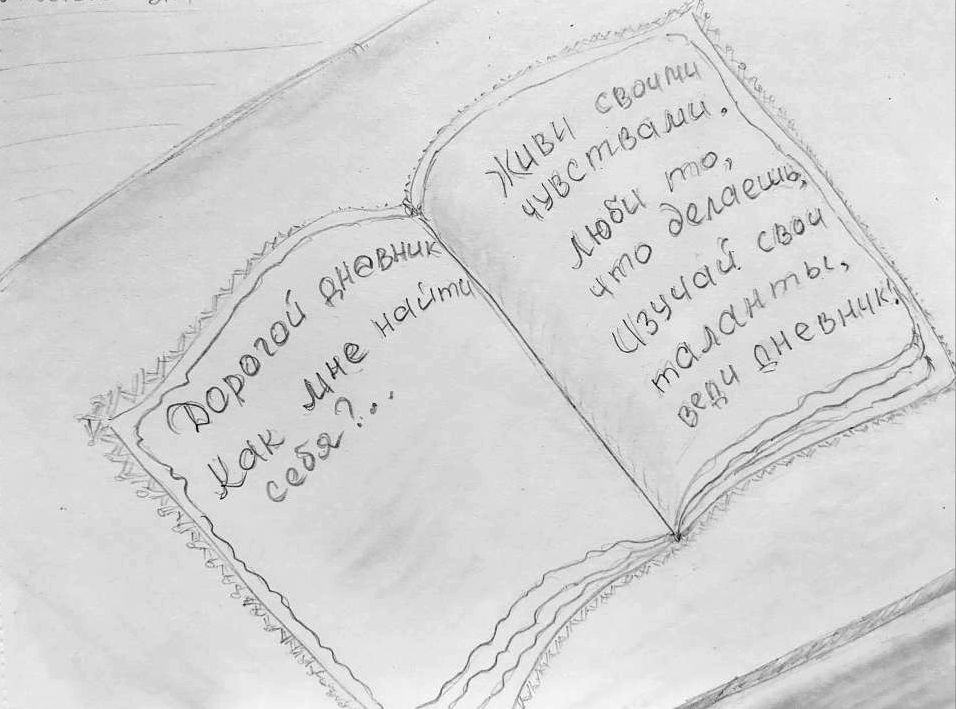 Дорогой дневник
Как мне найти
себя?...
Живи своими
чувствами.
Люби то,
что делаешь,
Изучай свои
таланты,
веди дневник!